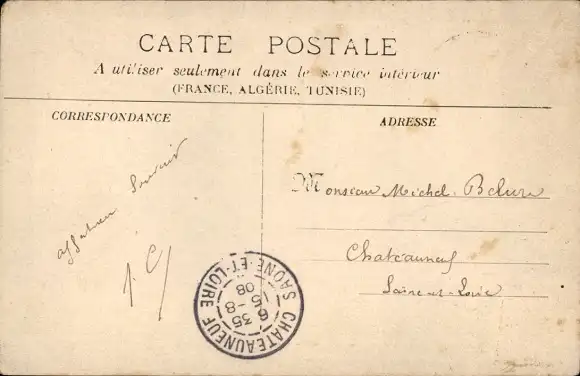 CARTE POSTALE
A utiliser seulement dans le service intérieur
(FRANCE, ALGÉRIE, TUNISIE)
CORRESPONDANCE
ADRESSE
Souvenir
Monsieur Michel
Chateauneuf
Saône-et-Loire
CHATEAUNEUF
SAÔNE-ET-LOIRE
6 35
5 - 8
08